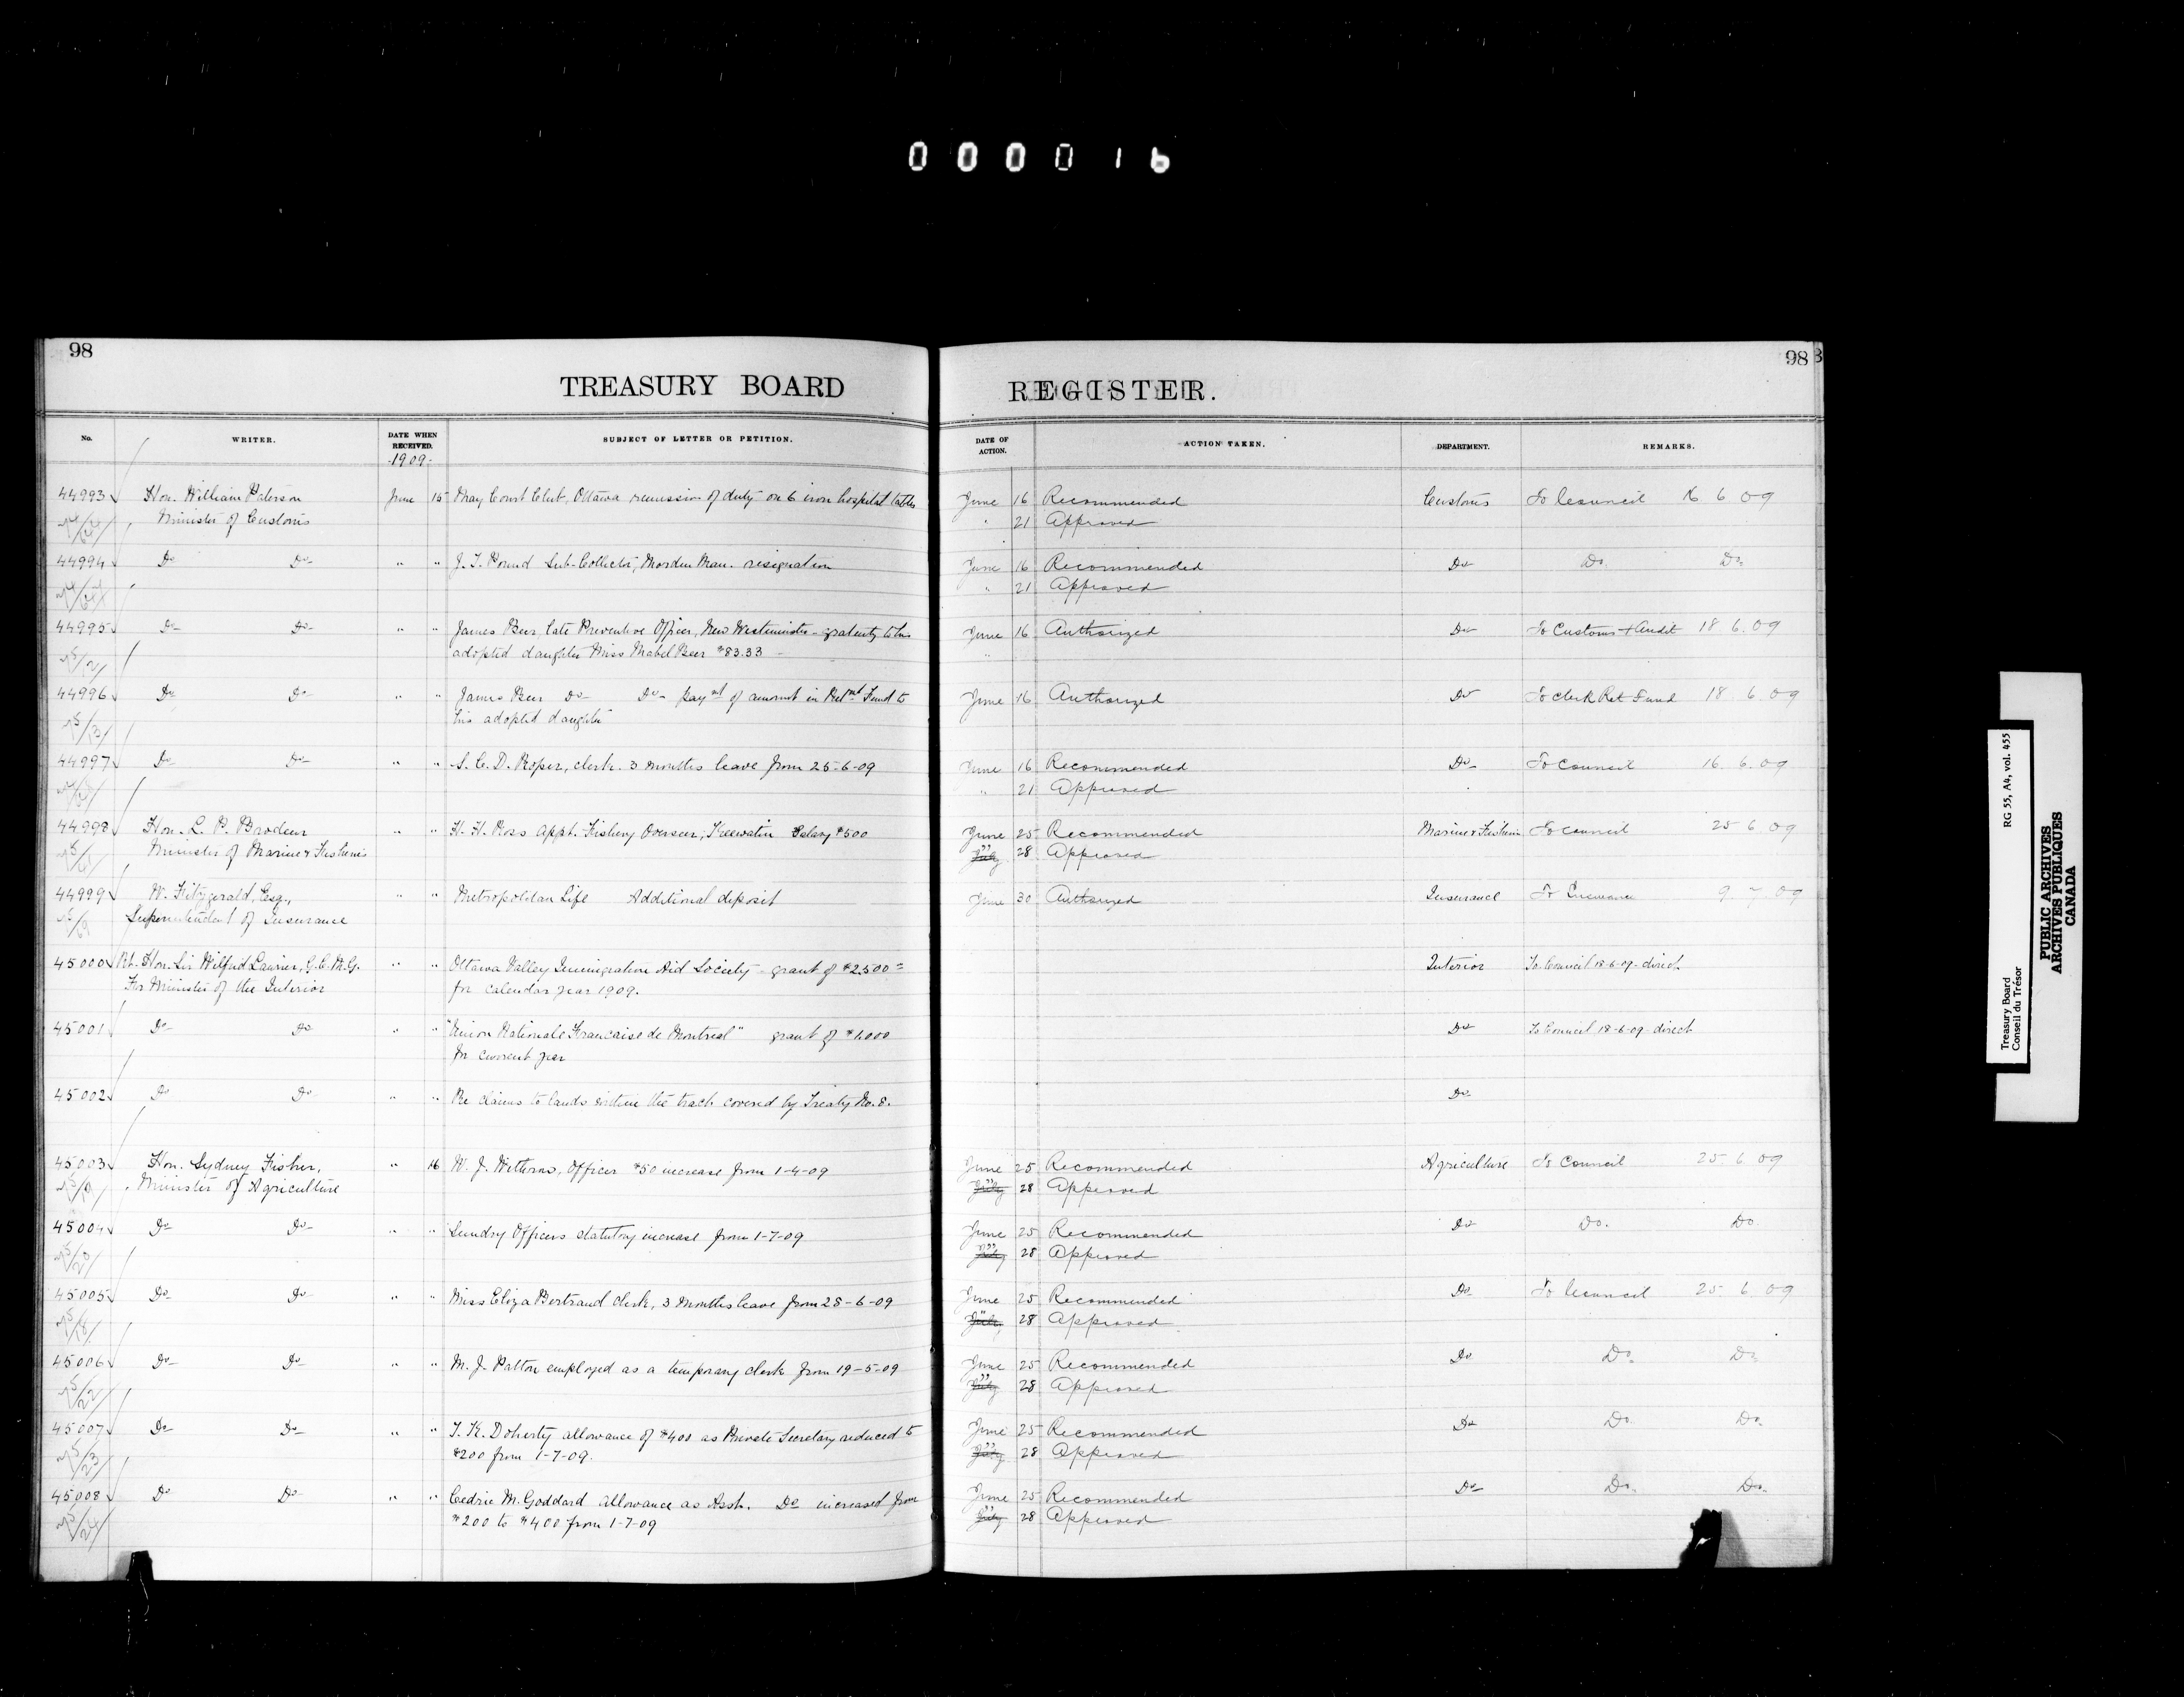 000016
98
TREASURY BOARD
REGISTER.
98
No.
WRITER.
DATE WHEN RECEIVED.
SUBJECT OF LETTER OR PETITION.
DATE OF ACTION.
ACTION TAKEN.
DEPARTMENT.
REMARKS.
-1909-
44993 Hon. William Paterson June 15 May Court Club, Ottawa remission of duty on 6 iron hospital tables June 16 Recommended Customs To Council 16 6 09
Minister of Customs " 21 Approved
44994 Do Do " " J. T. Pound Sub-Collector, Morden Man. resignation June 16 Recommended Do Do. Do.
" 21 Approved
44995 Do Do " " James Beer, late Preventive Officer, New Westminster - gratuity to his June 16 Authorized Do To Customs + Audit 18 6.09
adopted daughter Miss Mabel Beer $83.33 "
44996 Do Do " " James Beer Do Do paymt of amount in Retmt Fund to June 16 Authorized Do To Clerk Ret Fund 18 6.09
his adopted daughter
44997 Do Do " " S. C. D. Roper, clerk. 3 months leave from 25-6-09 June 16 Recommended Do To Council 16. 6. 09
" 21 Approved
44998 Hon. L. P. Brodeur " " H. H. Ross Appt. Fishery Overseer, Keewatin Salary $500 June 25 Recommended Marine & Fisheries To Council 25 6 09
Minister of Marine & Fisheries July " 28 Approved
44999 W. Fitzgerald, Esq., " " Metropolitan Life Additional deposit June 30 Authorized Insurance To Insurance 9 7 09
Superintendent of Insurance
45000 Rt. Hon. Sir Wilfrid Laurier, G.C.M.G. " " Ottawa Valley Immigration Aid Society - grant of $2500= Interior To Council 18-6-09-direct
For Minister of the Interior for calendar year 1909.
45001 Do Do " " "Union Nationale Francaise de Montreal" grant of $1,000 Do To Council 18-6-09-direct
for current year
45002 Do Do " " Re claims to lands within the tract covered by Treaty No. 8. Do
45003 Hon. Sydney Fisher, " 16 W. J. , Officer $50 increase from 1-4-09 June 25 Recommended Agriculture To Council 25 6 09
Minister of Agriculture July " 28 Approved
45004 Do Do " " Sundry Officers statutory increase from 1-7-09 June 25 Recommended Do Do. Do.
July " 28 Approved
45005 Do Do " " Miss Eliza Bertrand clerk, 3 months leave from 28-6-09 June 25 Recommended Do To Council 25. 6. 09
July " 28 Approved
45006 Do Do " " M. J. Patton employed as a temporary clerk from 19-5-09 June 25 Recommended Do Do. Do.
July " 28 Approved
45007 Do Do " " T. K. Doherty allowance of $400 as Private Secretary reduced to June 25 Recommended Do Do. Do.
$200 from 1-7-09. July " 28 Approved
45008 Do Do " " Cedric M. Goddard allowance as Asst. Do increased from June 25 Recommended Do Do. Do.
$200 to $400 from 1-7-09 July " 28 Approved
Treasury Board RG 55, A4, vol. 455
Conseil du Trésor
PUBLIC ARCHIVES
ARCHIVES PUBLIQUES
CANADA